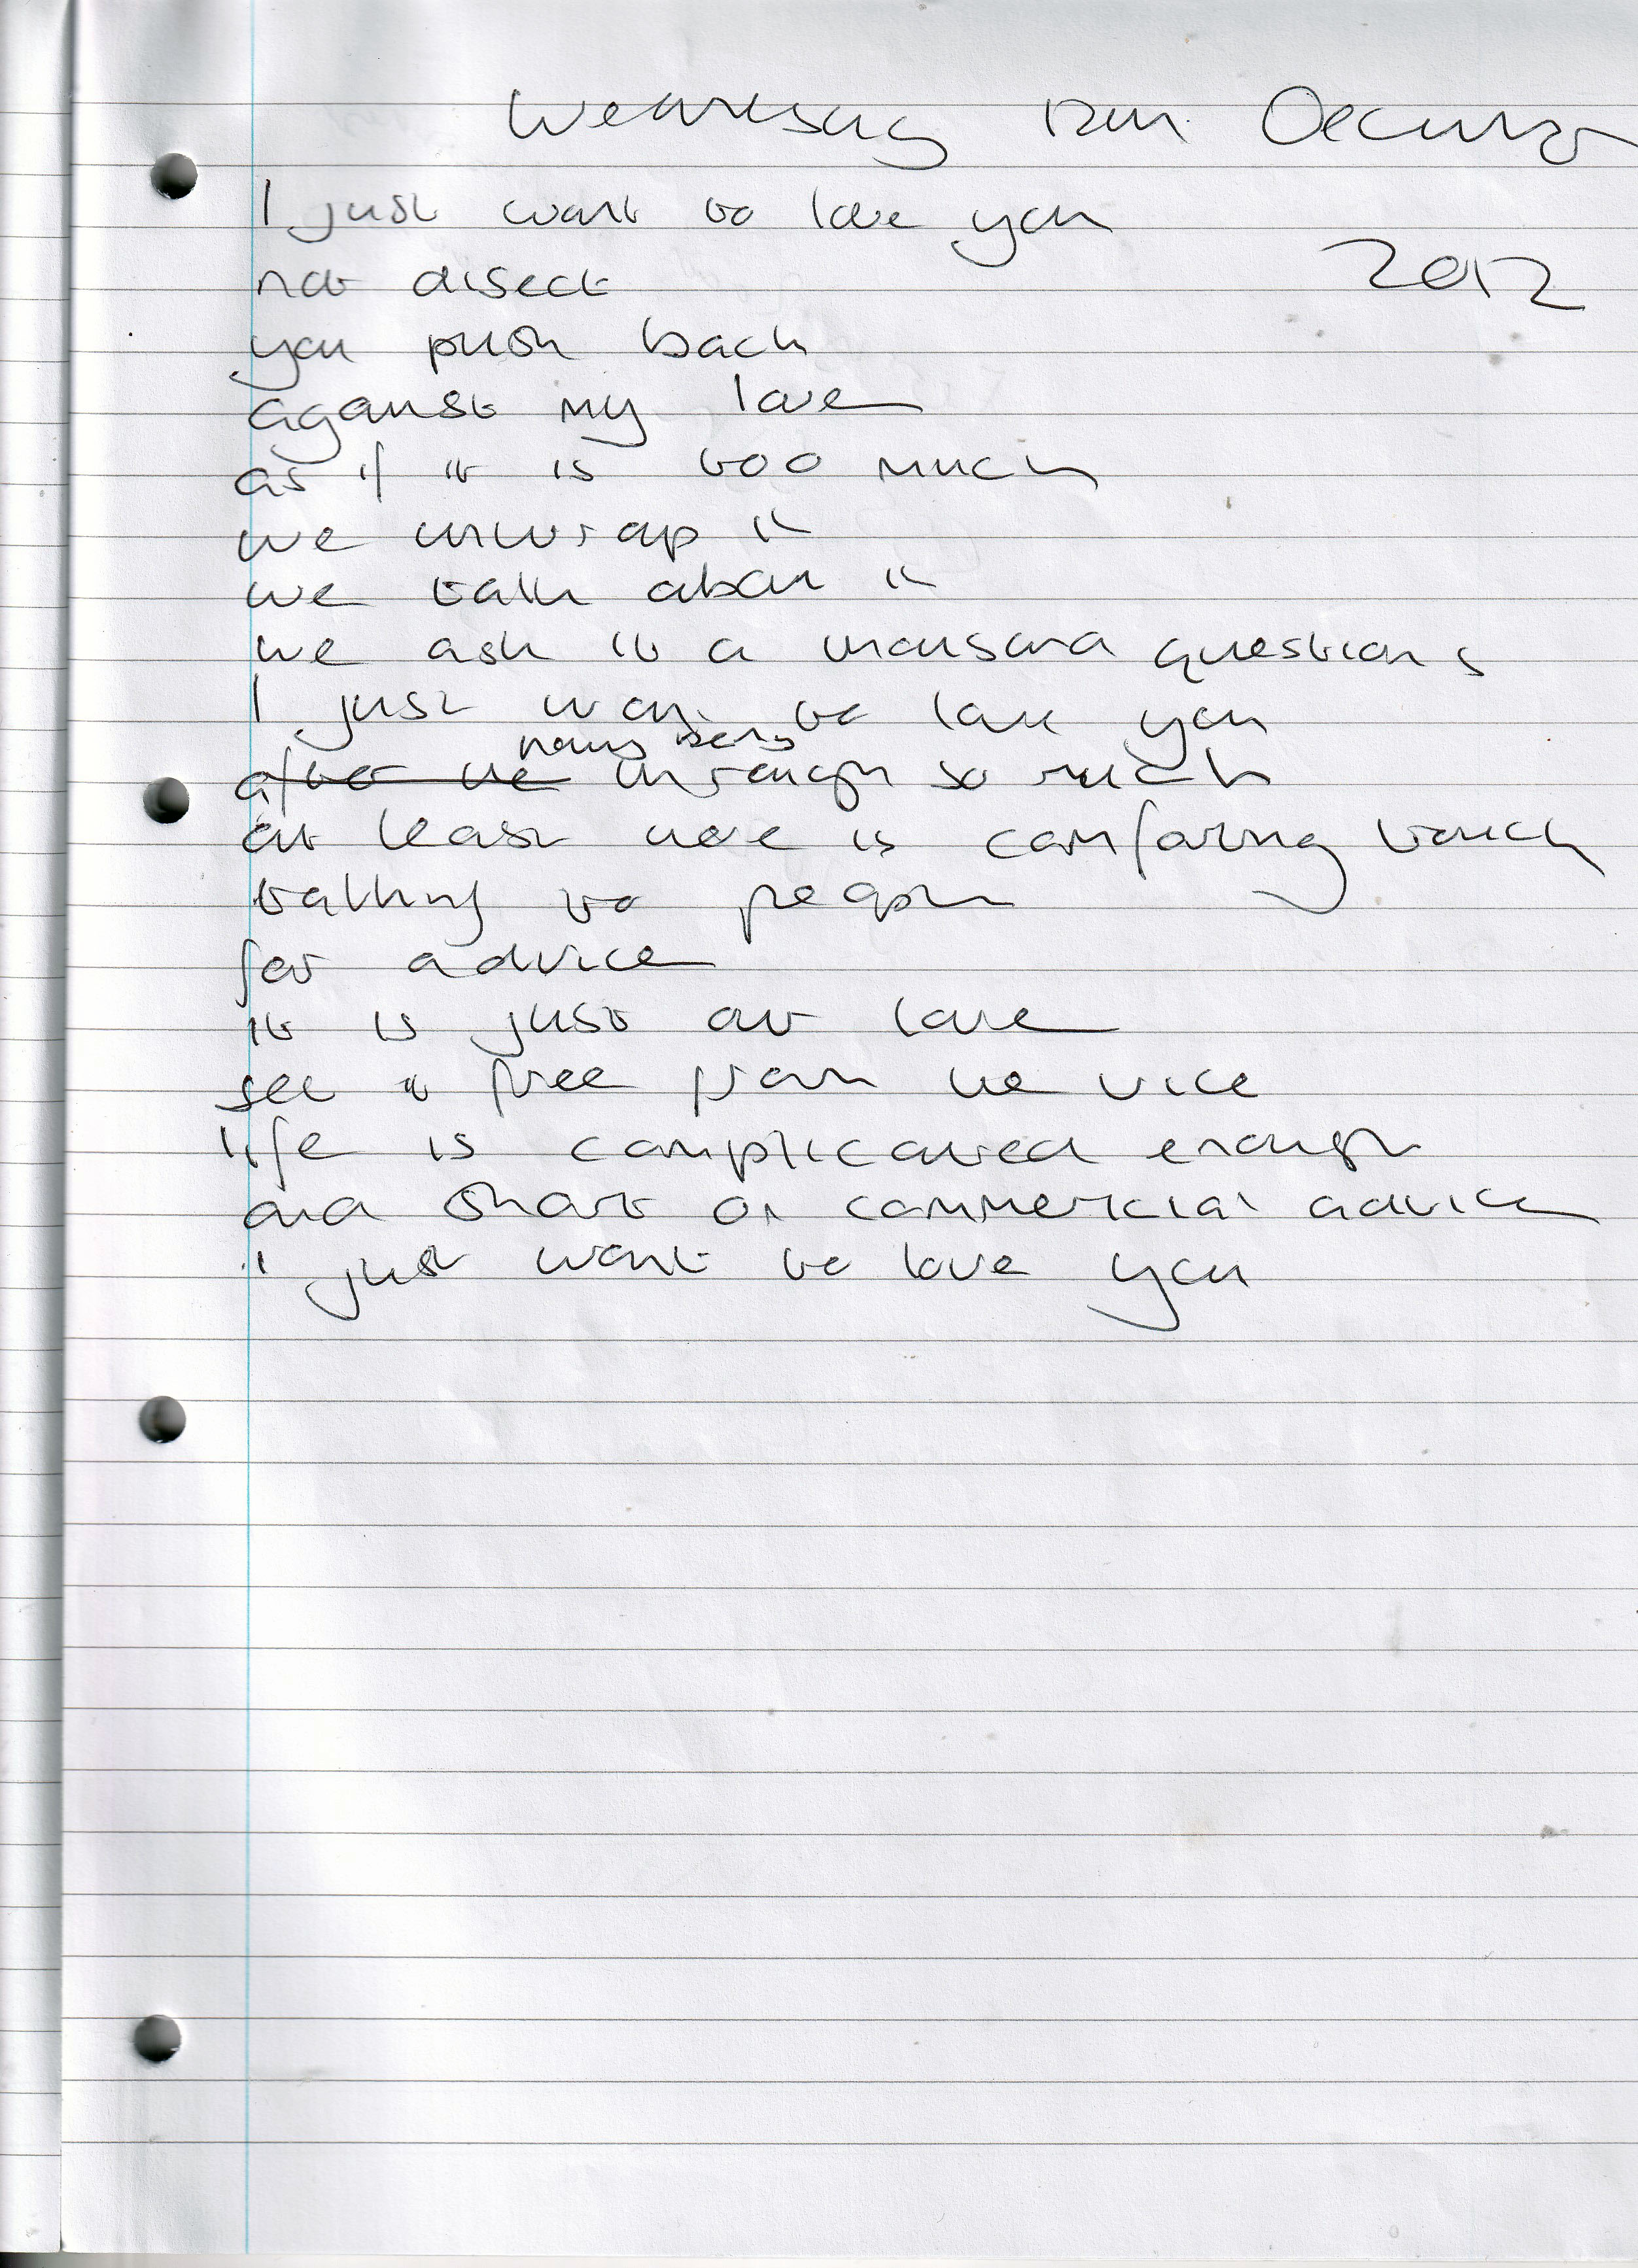 Wednesday 12th December
2012
I just want to love you
not disect
you push back
against my love
as if it is too much
we unwrap it
we talk about it
we ask it a thousand questions
I just want to love you
having been
after we through so much
at least there is comforting touch
talking to people
for advice
it is just our love
set it free from the vice
life is complicated enough
and short on commercial advice
I just want to love you